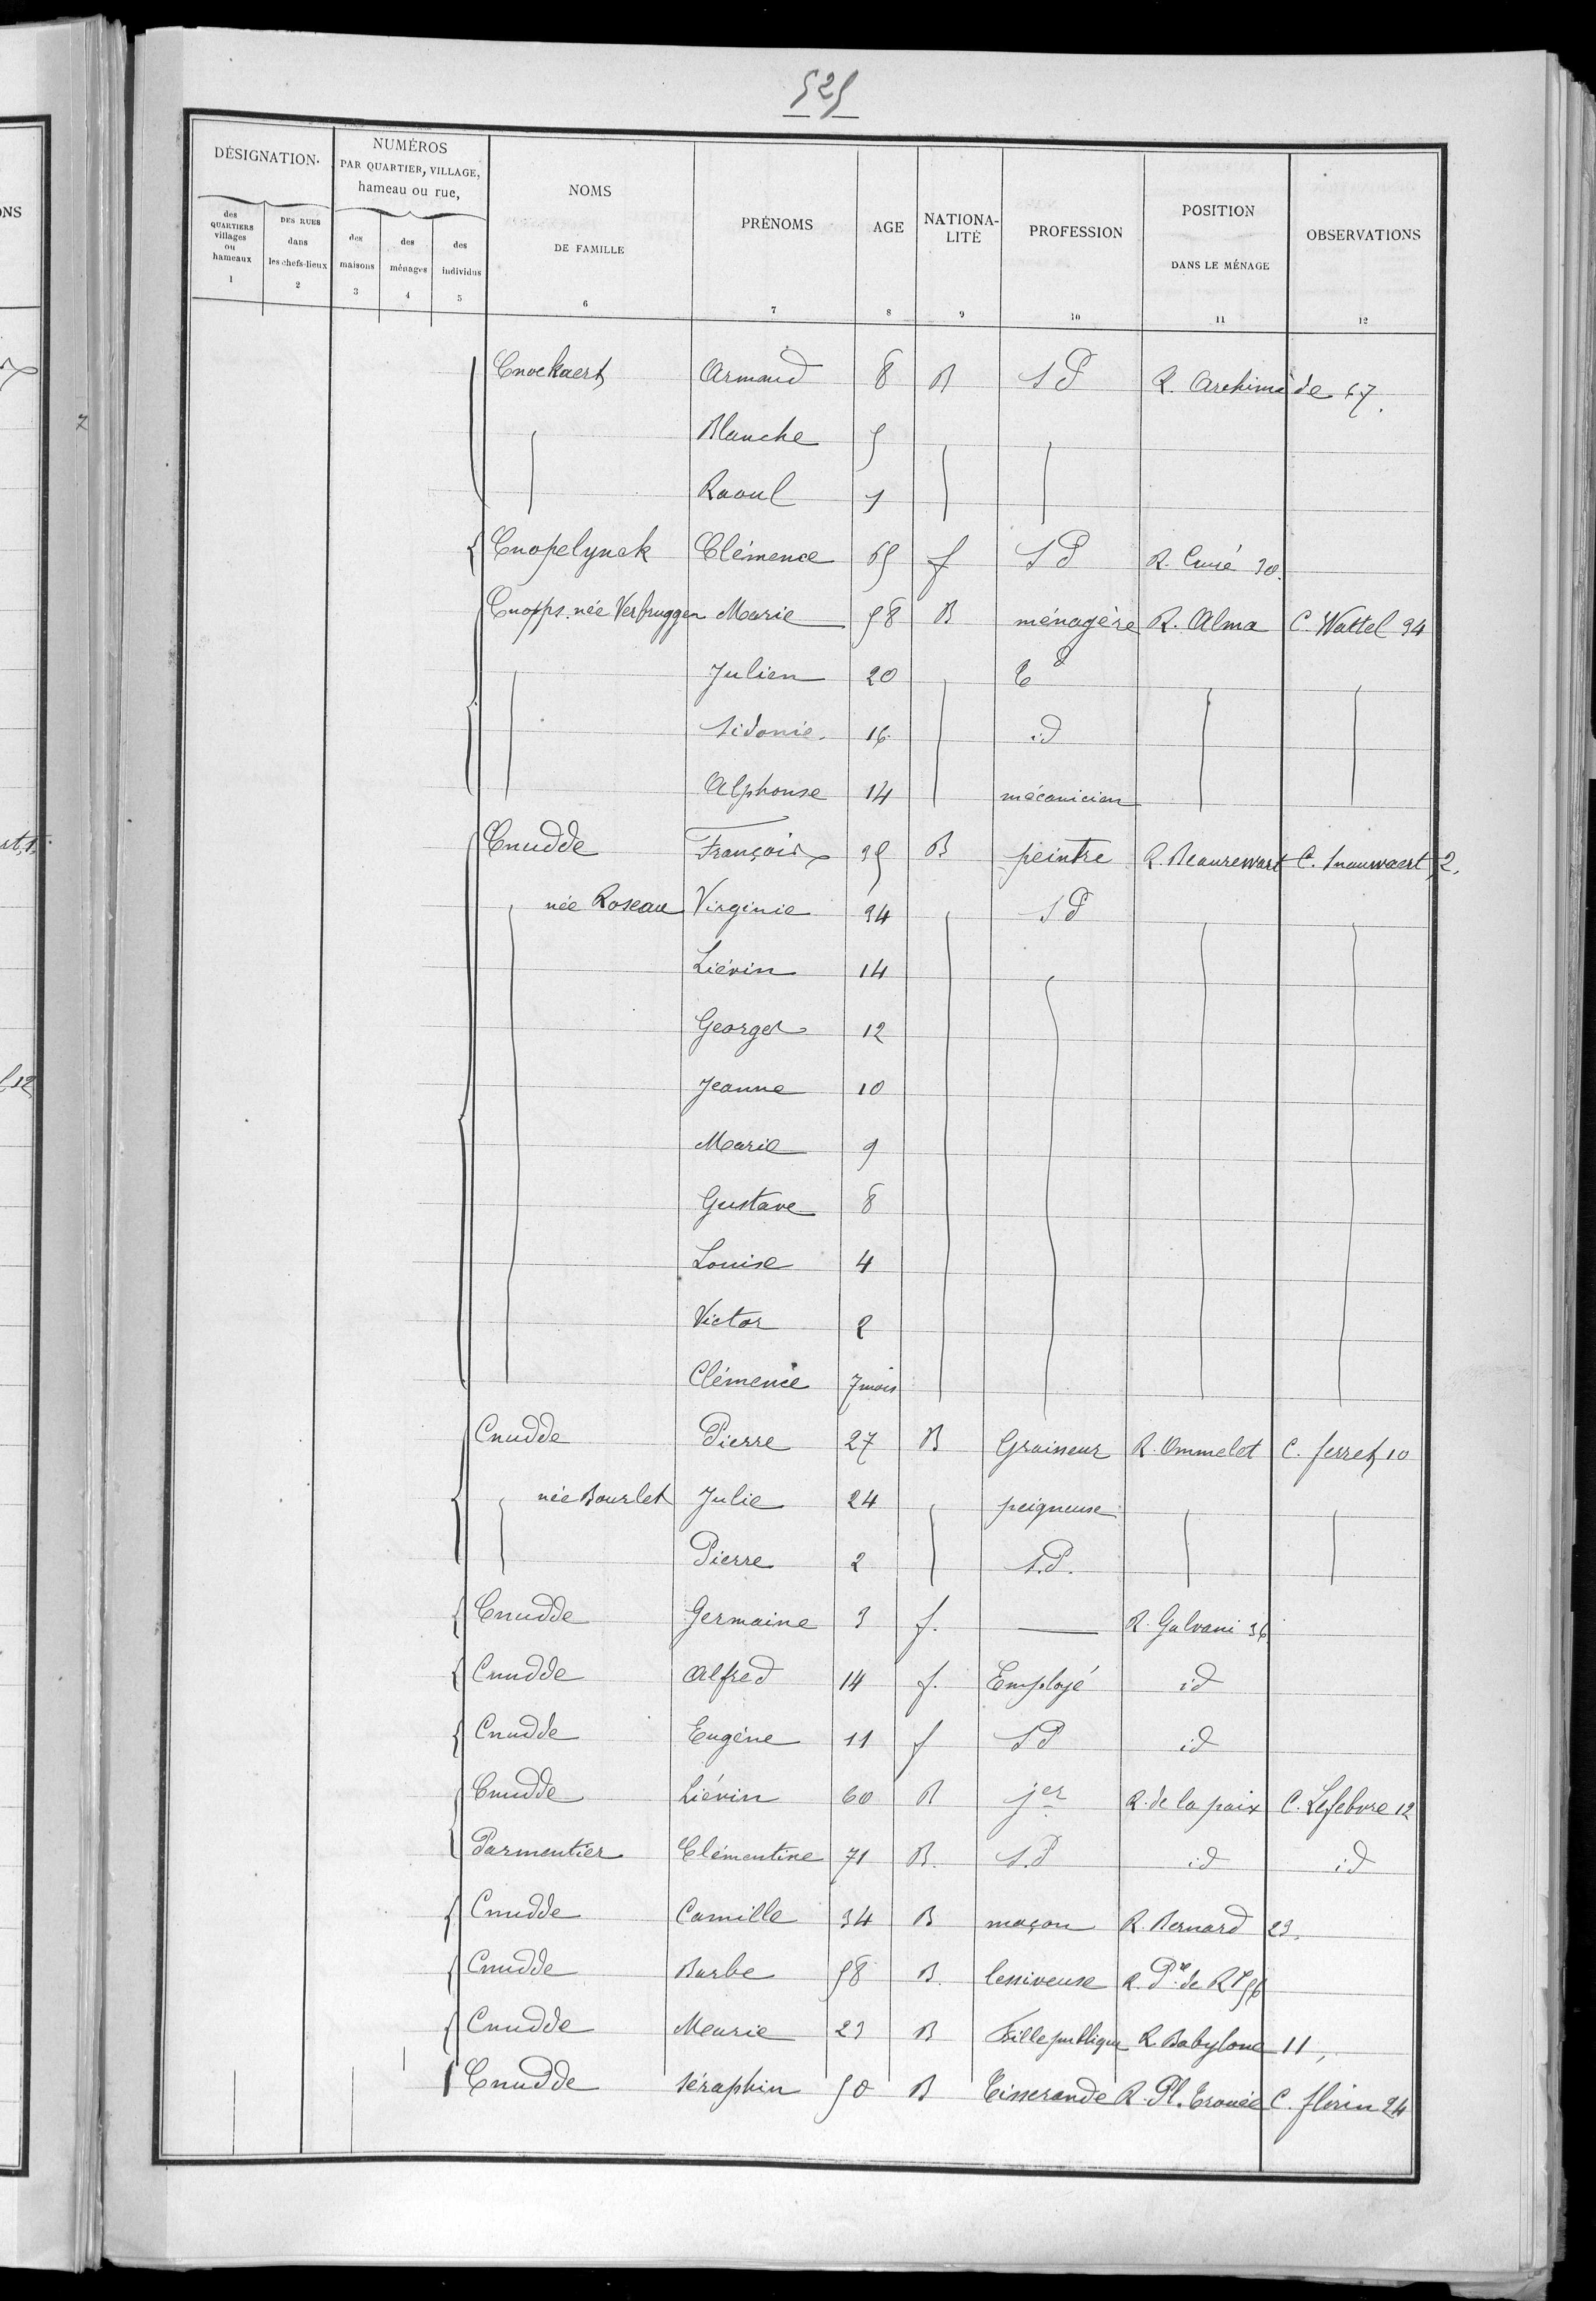 525
DÉSIGNATION. NUMÉROS PAR QUARTIER, VILLAGE, hameau ou rue, NOMS DE FAMILLE PRÉNOMS AGE NATIONALITÉ PROFESSION POSITION DANS LE MÉNAGE OBSERVATIONS
des QUARTIERS villages ou hameaux DES RUES dans les chefs-lieux des maisons des ménages des individus
1 2 3 4 5 6 7 8 9 10 11 12
Cnockaert Armand 8 B S P R. Archimède 67.
Blanche 5
Raoul 1
Cnopelynck Clémence 65 f S P R. Curé 30.
Cnopps. née Verbruggen Marie 58 B ménagère R. Alma C. Wattel 34
Julien 20 Td
Sidonie. 16. id
Alphonse 14 mécanicien
Cnudde François 35 B peintre R. Beaurewart C. Snauwaert, 2.
née Roseau Virginie 34 S P
Liévin 14
Georges 12
Jeanne 10
Marie 9
Gustave 8
Louise 4
Victor 2
Clémence 7 mois
Cnudde Pierre 27 B Graisseur R. Ommelet C. ferret 10
née Bourlet Julie 24 peigneuse
Pierre 2 S.P.
Cnudde Germaine 3 f. — R. Galvani 36
Cnudde Alfred 14 f. Employé id
Cnudde Eugène 11 f S P id
Cnudde Liévin 60 B jer R. de la paix C. Lefebvre 12
Parmentier Clémentine 71 B. S.P id id
Cnudde Camille 34 B maçon R. Bernard 23.
Cnudde Barbe 58 B. lessiveuse R. Pre de Rx 56
Cnudde Marie 23 B Fille publique R. Babylone 11,
Cnudde Séraphin 50 B Tisserande R. Pl. Trouée C. florin 24